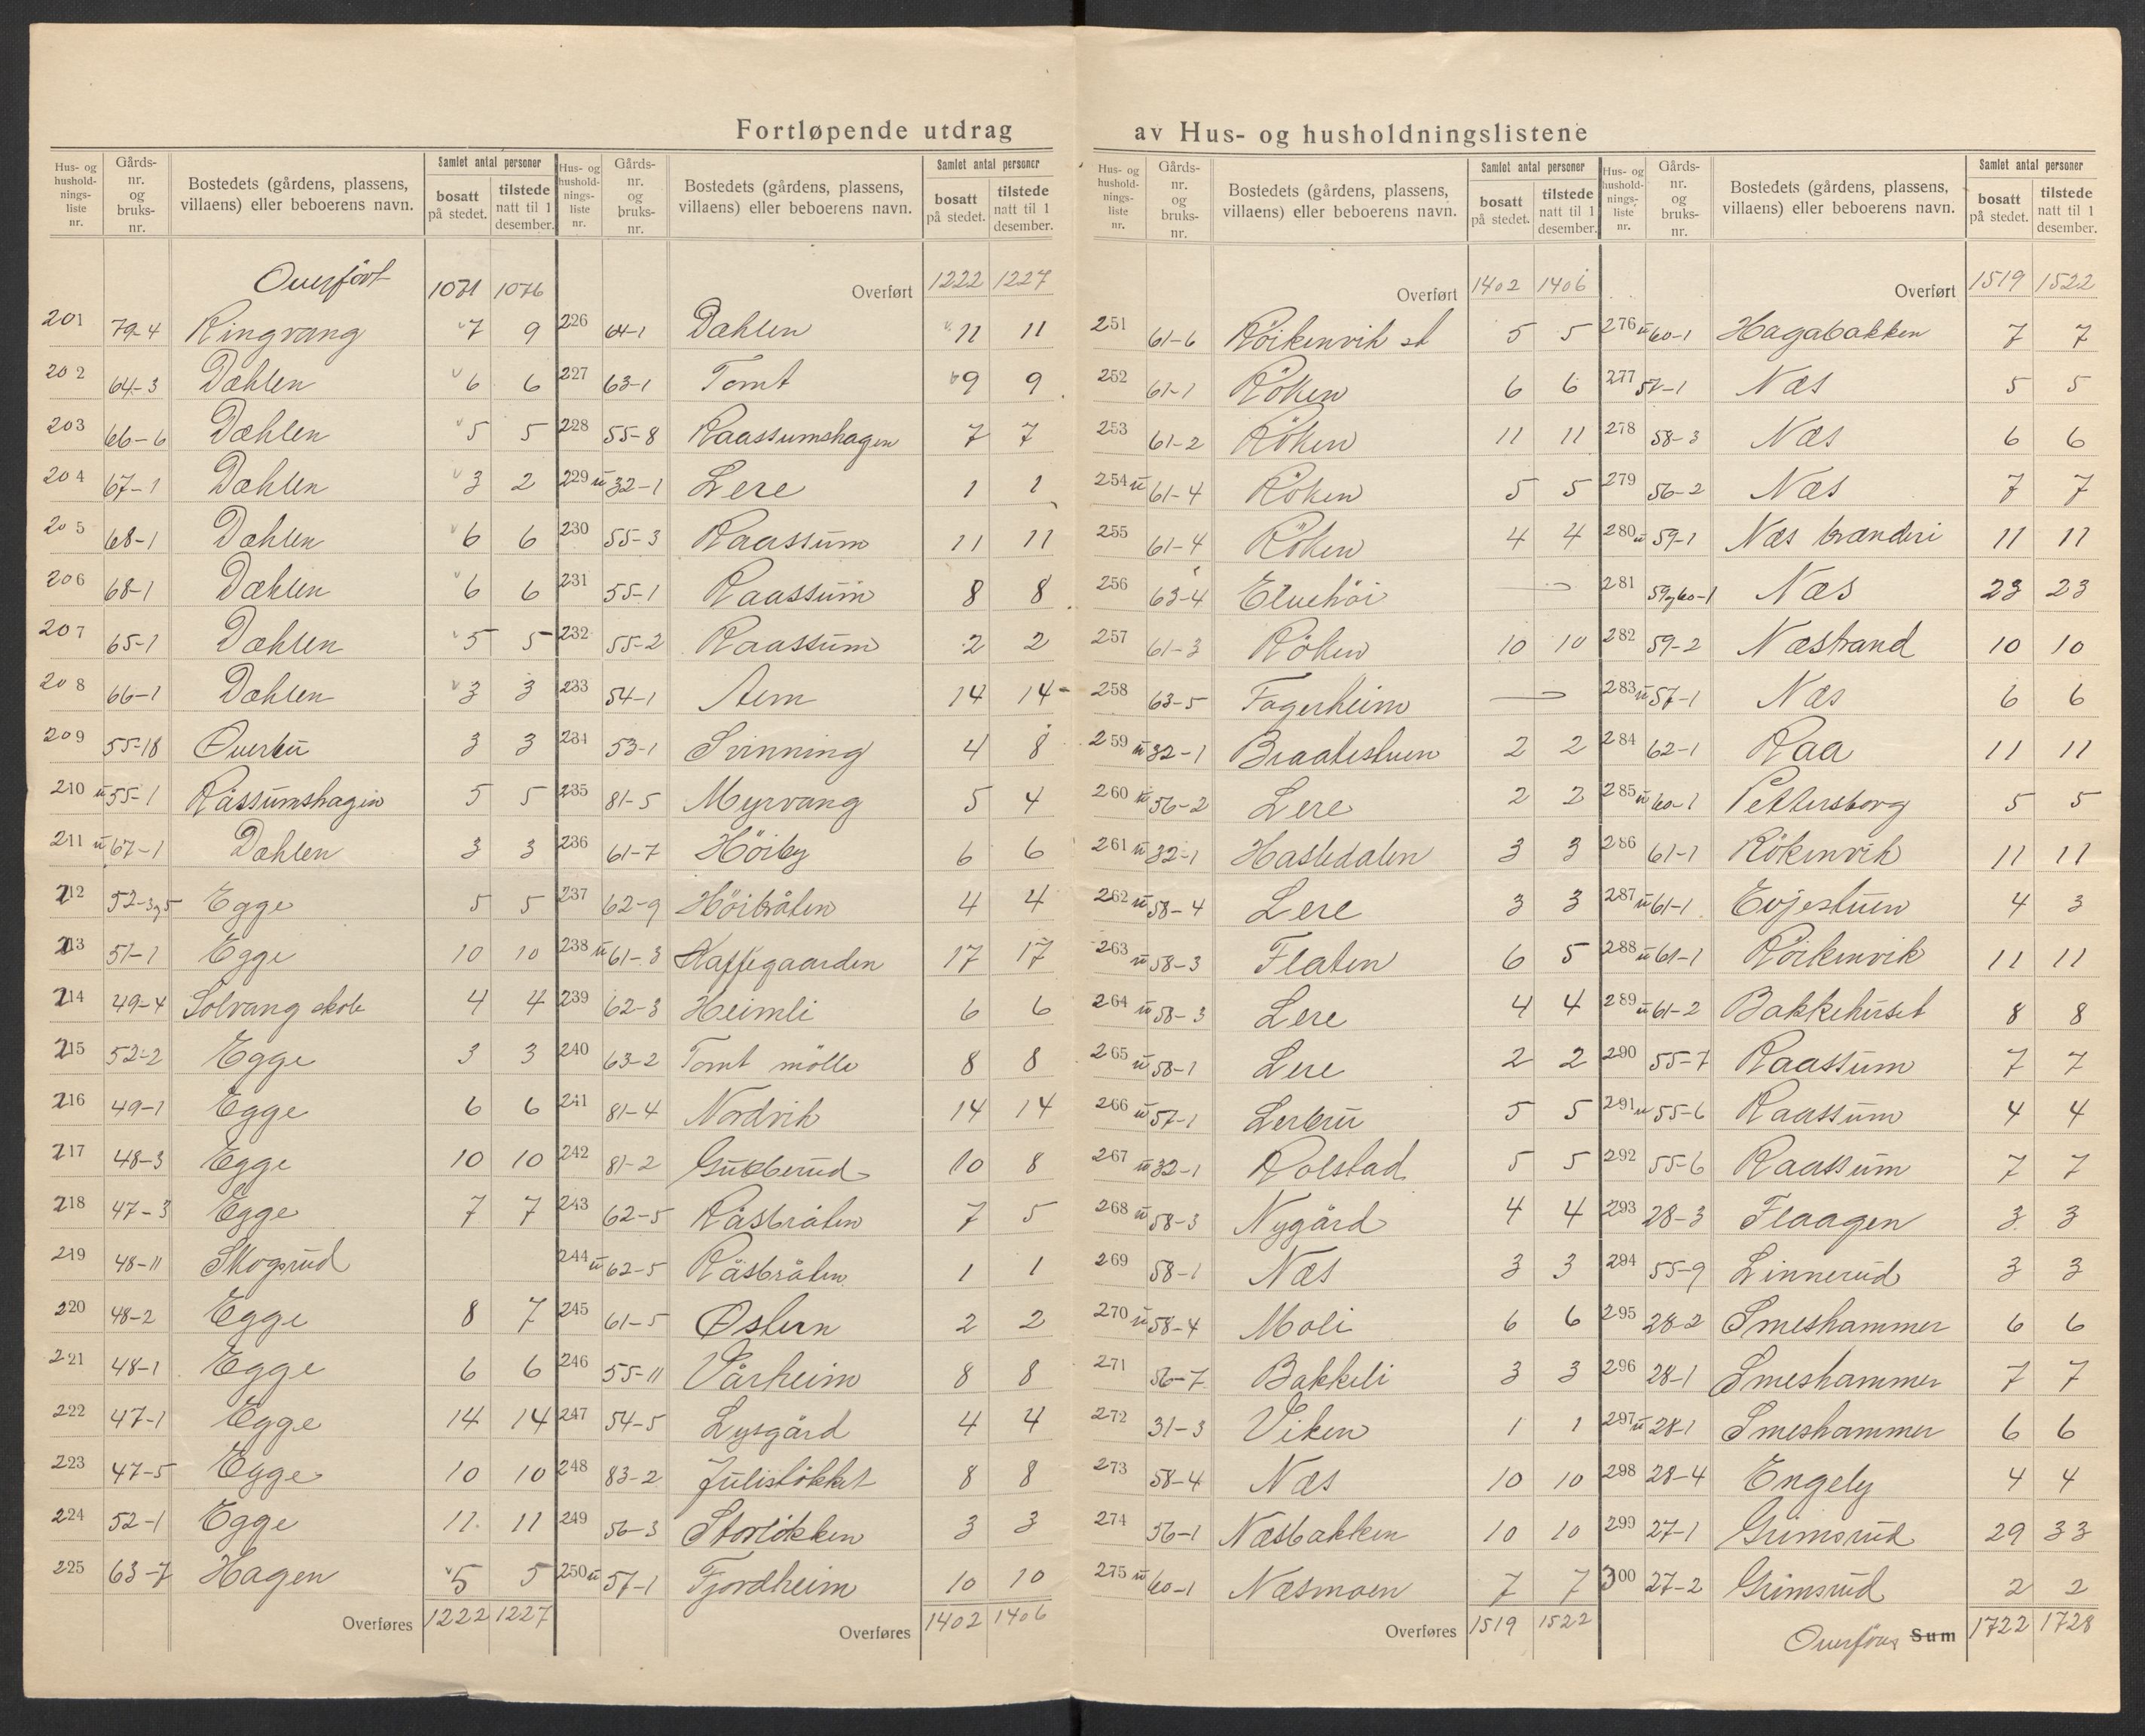 Fortløpende utdrag av Hus- og husholdningslistene
Hus- og hushold-nings-liste nr. | Gårds-nr. og bruks-nr. | Bostedets (gårdens, plassens, villaens) eller beboerens navn. | Samlet antal personer | bosatt på stedet. | tilstede natt til 1 desember.
Overført 1071 1076
201 79-4 Ringvang 7 9
202 64-3 Dæhlen 6 6
203 66-6 Dæhlen 5 5
204 67-1 Dæhlen 3 2
205 68-1 Dæhlen 6 6
206 68-1 Dæhlen 6 6
207 65-1 Dæhlen 5 5
208 66-1 Dæhlen 3 3
209 55-18 Øverbu 3 3
210 u 55-1 Råssumshagen 5 5
211 u 67-1 Dæhlen 3 3
212 52-3og5 Egge 5 5
213 51-1 Egge 10 10
214 49-4 Solvang skole 4 4
215 52-2 Egge 3 3
216 49-1 Egge 6 6
217 48-3 Egge 10 10
218 47-3 Egge 7 7
219 48-11 Skogrud
220 48-2 Egge 8 7
221 48-1 Egge 6 6
222 47-1 Egge 14 14
223 47-5 Egge 10 10
224 52-1 Egge 11 11
225 63-7 Hagen 5 5
Overføres 1222 1227
Hus- og hushold-nings-liste nr. | Gårds-nr. og bruks-nr. | Bostedets (gårdens, plassens, villaens) eller beboerens navn. | Samlet antal personer | bosatt på stedet. | tilstede natt til 1 desember.
Overført 1222 1227
226 64-1 Dæhlen 11 11
227 63-1 Tomt 9 9
228 55-8 Raassumshagen 7 7
229 u 32-1 Lere 1 1
230 55-3 Raassum 11 11
231 55-1 Raassum 8 8
232 55-2 Raassum 2 2
233 54-1 Aem 14 14
234 53-1 Svinning 4 8
235 81-5 Myrvang 5 4
236 61-7 Höiby 6 6
237 62-9 Höibråten 4 4
238 u 61-3 Kaffegaarden 17 17
239 62-3 Heimli 6 6
240 63-2 Tomt mölle 8 8
241 81-4 Nordvik 14 14
242 81-2 Gubberud 10 8
243 62-5 Råsbråten 7 5
244 u 62-5 Råsbråten 1 1
245 61-5 Østern 2 2
246 55-11 Vårheim 8 8
247 54-5 Lysgård 4 4
248 83-2 Julislökket 8 8
249 56-3 Storlökken 3 3
250 u 57-1 Fjordheim 10 10
Overføres 1402 1406
Hus- og hushold-nings-liste nr. | Gårds-nr. og bruks-nr. | Bostedets (gårdens, plassens, villaens) eller beboerens navn. | Samlet antal personer | bosatt på stedet. | tilstede natt til 1 desember.
Overført 1402 1406
251 61-6 Röikenvik st 5 5
252 61-1 Röken 6 6
253 61-2 Röken 11 11
254 u 61-4 Röken 5 5
255 61-4 Röken 4 4
256 63-4 Eluehöi —
257 61-3 Röken 10 10
258 63-5 Fagerheim —
259 u 32-1 Braatestuen 2 2
260 u 56-2 Lere 2 2
261 u 32-1 Hasledalen 3 3
262 u 58-4 Lere 3 3
263 u 58-3 Flaten 6 5
264 u 58-3 Lere 4 4
265 u 58-1 Lere 2 2
266 u 57-1 Lerbru 5 5
267 u 32-1 Rolstad 5 5
268 u 58-3 Nygård 4 4
269 58-1 Næs 3 3
270 u 58-4 Moli 6 6
271 56-7 Bakkeli 3 3
272 31-3 Viken 1 1
273 58-4 Næs 10 10
274 56-1 Næsbakken 10 10
275 u 60-1 Næsmoen 7 7
Overføres 1519 1522
Hus- og hushold-nings-liste nr. | Gårds-nr. og bruks-nr. | Bostedets (gårdens, plassens, villaens) eller beboerens navn. | Samlet antal personer | bosatt på stedet. | tilstede natt til 1 desember.
Overført 1519 1522
276 u 60-1 Hagabakken 7 7
277 57-1 Næs 5 5
278 58-3 Næs 6 6
279 56-2 Næs 7 7
280 u 59-1 Næs brænderi 11 11
281 59og60-1 Næs 23 23
282 59-2 Næstrand 10 10
283 u 57-1 Næs 6 6
284 62-1 Raa 11 11
285 u 60-1 Pettersborg 5 5
286 61-1 Rökenvik 11 11
287 u 61-1 Evjestuen 4 3
288 u 61-1 Röikenvik 11 11
289 u 61-2 Bakkehuset 8 8
290 55-7 Raassum 7 7
291 u 55-6 Raassum 4 4
292 55-6 Raassum 7 7
293 28-3 Flaagen 3 3
294 55-9 Linnerud 3 3
295 28-2 Smeshammer 6 6
296 28-1 Smeshammer 7 7
297 u 28-1 Smeshammer 6 6
298 28-4 Engely 4 4
299 27-1 Grimsrud 29 33
300 27-2 Grimsrud 2 2
Overføres Sum 1722 1728